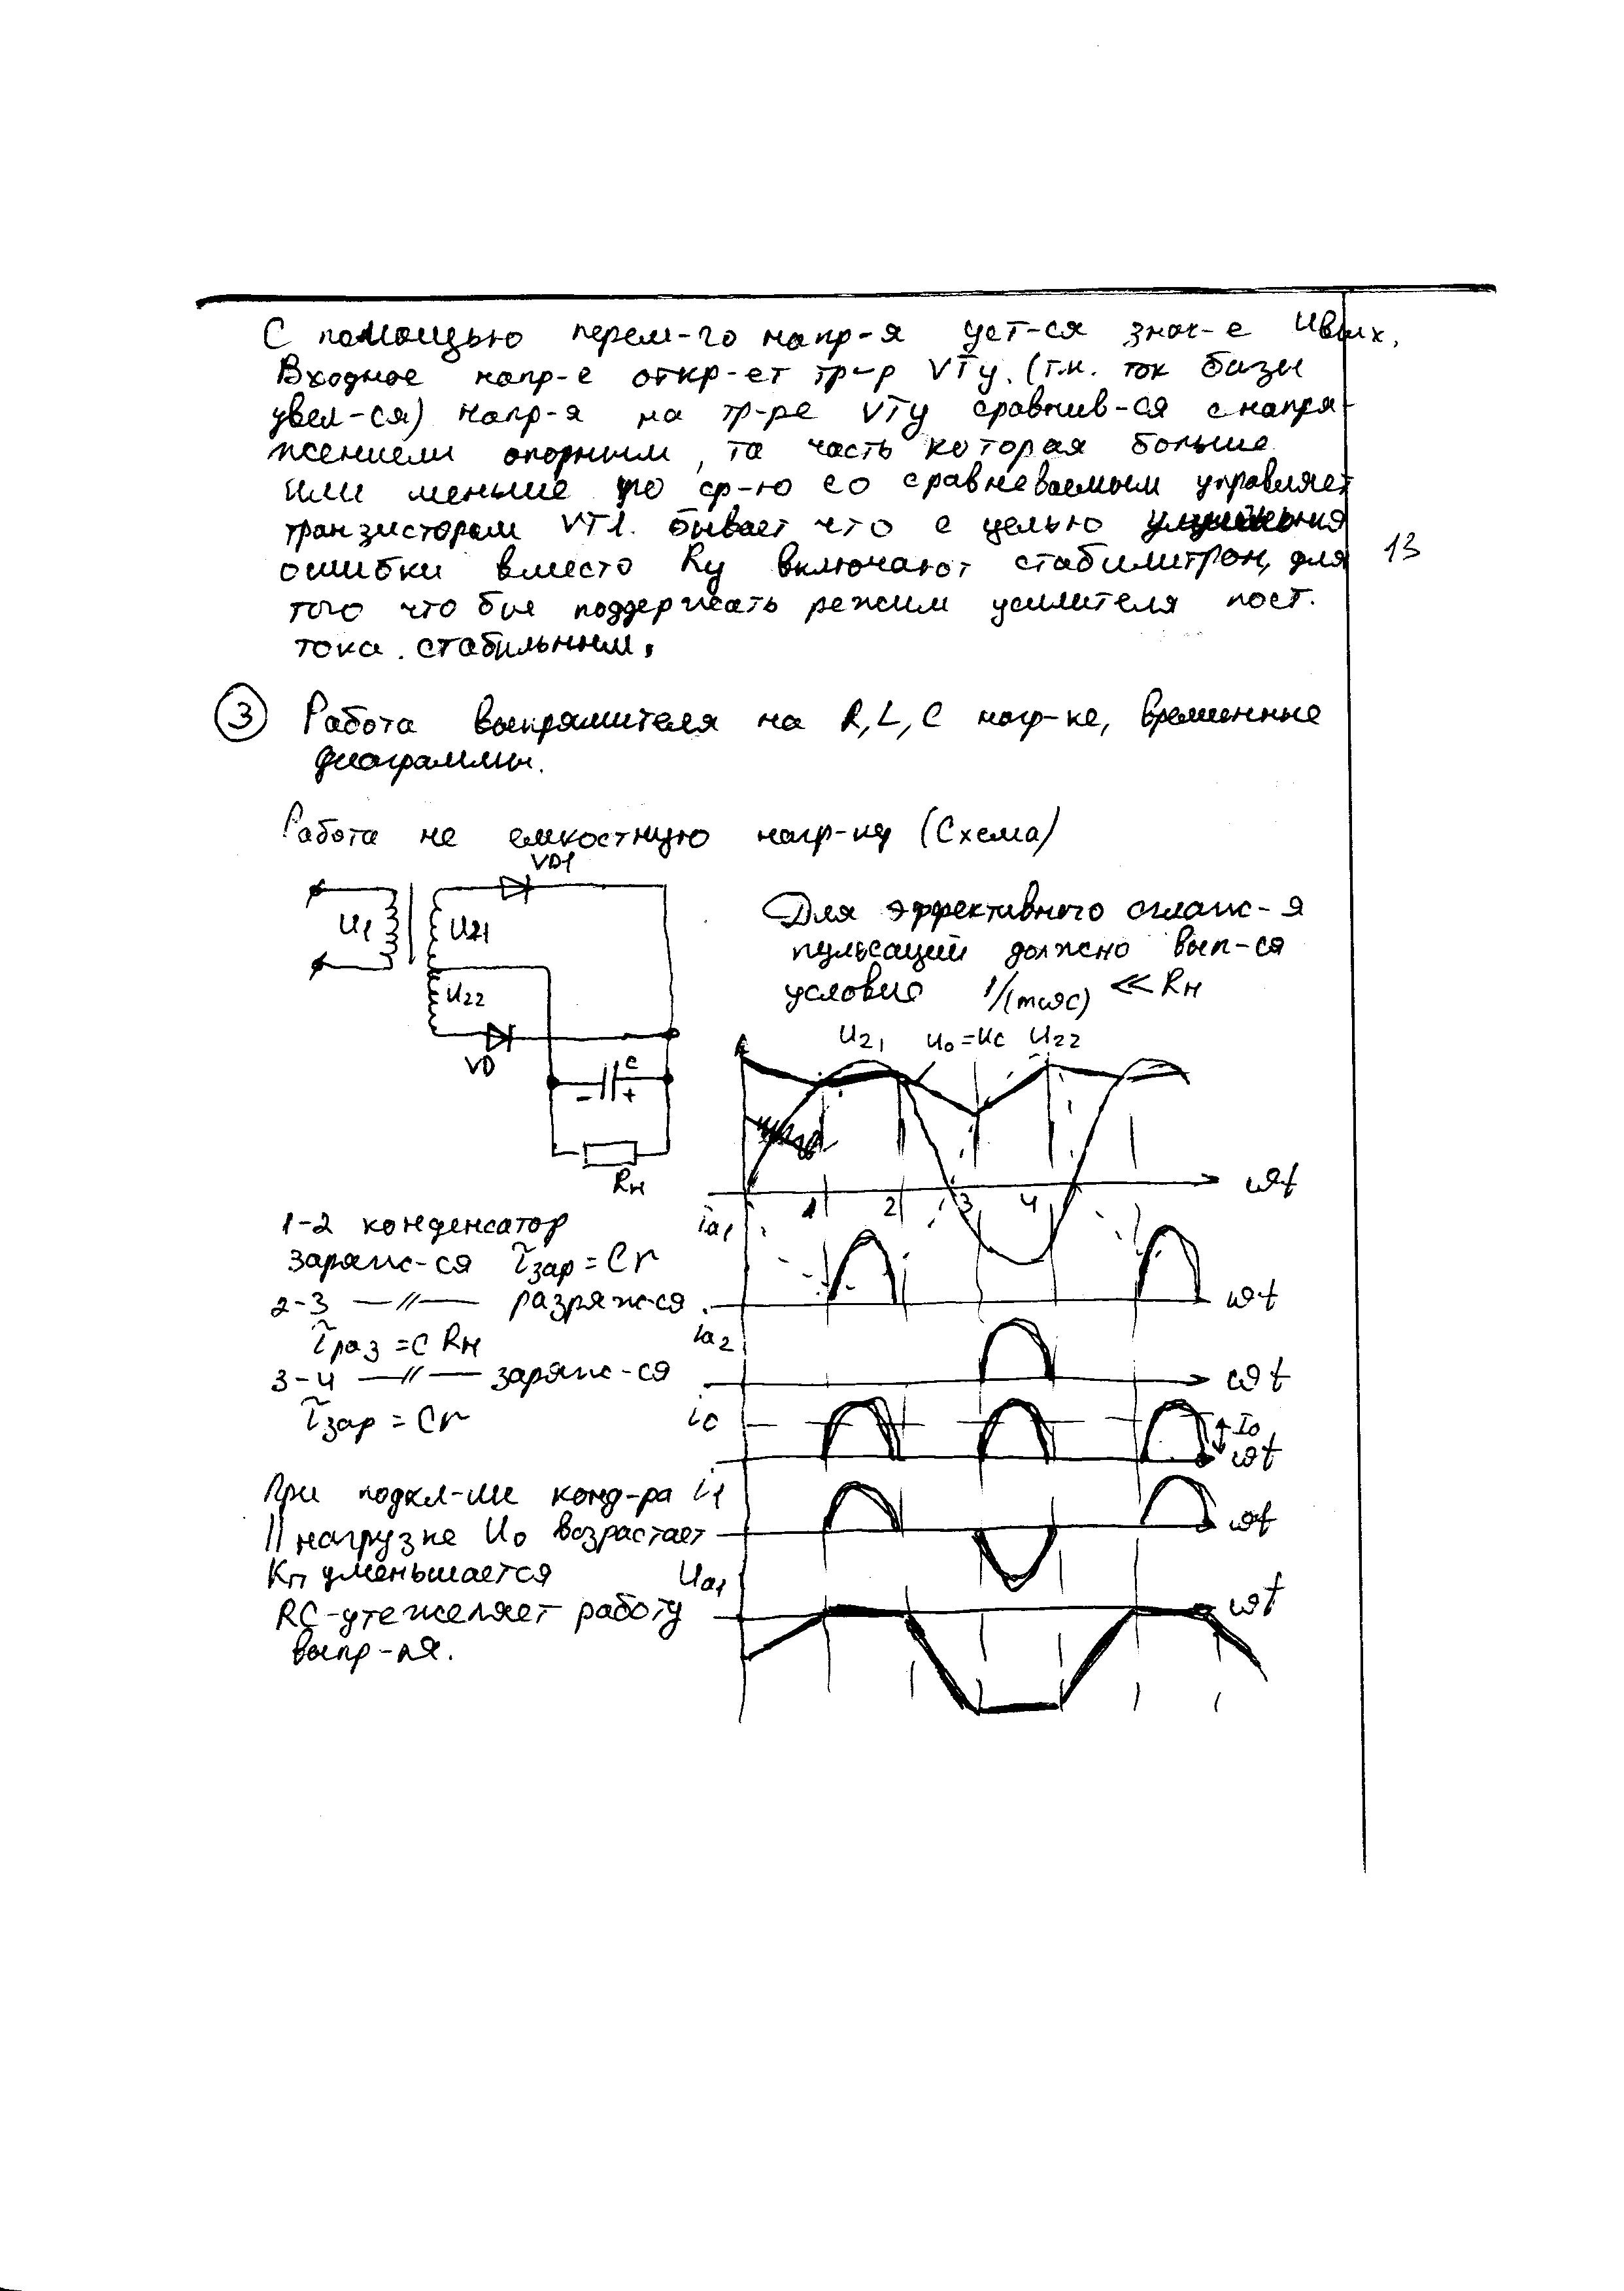 С помощью перем-го напр-я уст-ся знач-е Uвых.
Входное напр-е откр-ет тр-р VTу. (т.к. ток базы
увел-ся) напр-я на тр-ре VTу сравнив-ся с напря-
жением опорным, та часть которая больше
или меньше по ср-ю со сравневаемым управляет
транзистором VT1. бывает что с целью
ошибки вместо Rу включают стабилитрон, для
13
того что бы поддержать режим усилителя пост.
тока стабильным.
3 Работа выпрямителя на R, L, C нагр-ке, временные
диаграммы.
Работа не емкостную нагр-ку (Схема)
VD1
U1 U21
U22
VD
C
- +
Rн
Для эффективного сглаж-я
пульсаций должно вып-ся
условие 1/(mωC) << Rн
U21 U0=Uc U22
1 2 3 4 ωt
1-2 конденсатор
заряж-ся τзар = Cr
2-3 —//— разряж-ся
τраз = C Rн
3-4 —//— заряж-ся
τзар = Cr
ia1
ωt
ia2
ωt
i0
I0
ωt
При подкл-ии конд-ра
|| нагрузке U0 возрастает
Kп уменьшается
RC-утежеляет работу
выпр-ля.
i1
ωt
Ua1
ωt